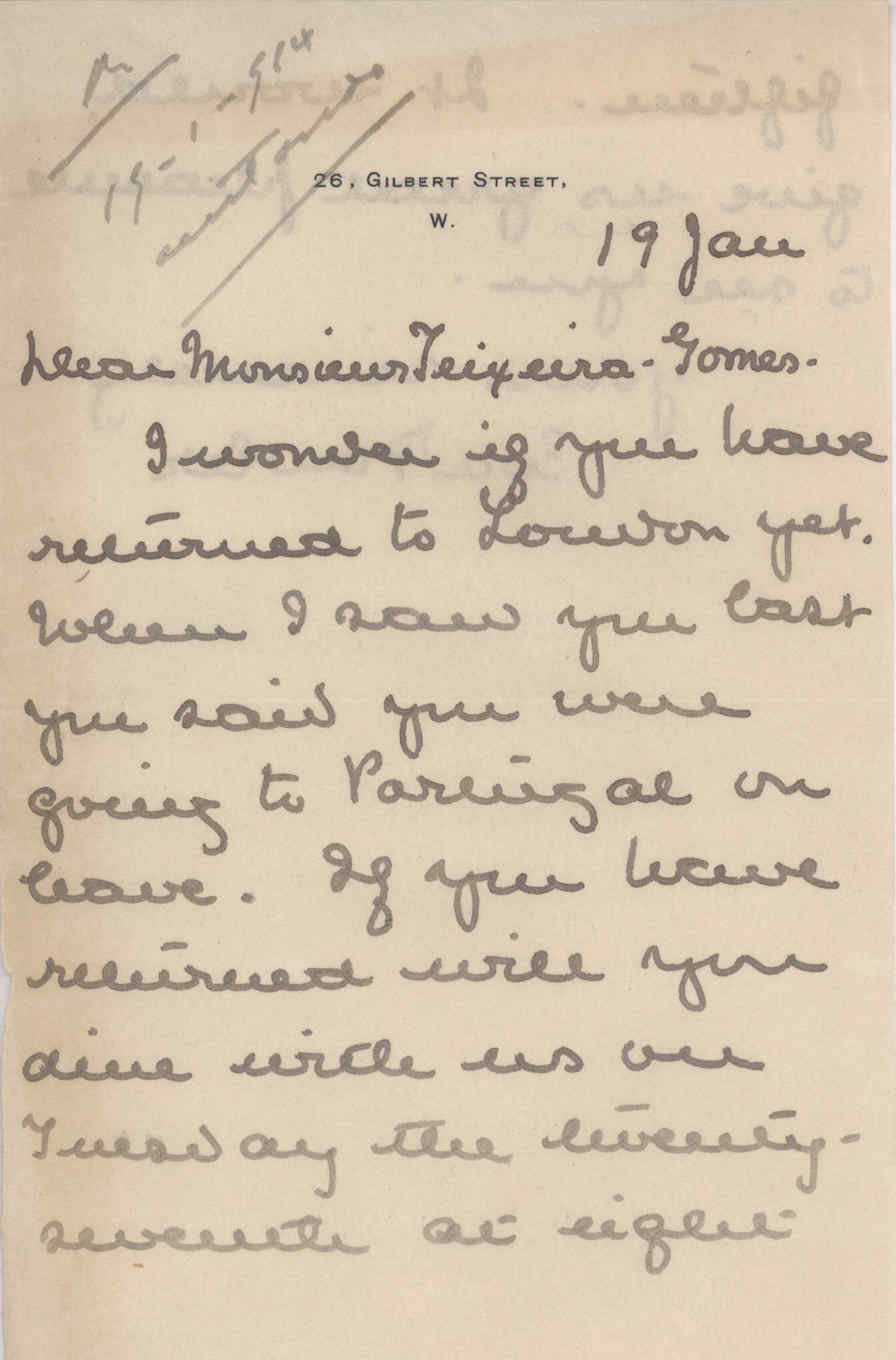 26, GILBERT STREET,
W.
19 Jan
Dear Monsieur Teixeira-Gomes.
I wonder if you have
returned to London yet.
When I saw you last
you said you were
going to Portugal on
leave. If you have
returned will you
dine with us on
Tuesday the twenty-
seventh at eight